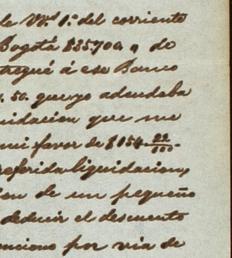 de Vd. 1º del corriente
Bogotá $35.700, " de
tregué á ese Banco
50. que yo adeudaba
uidacion que me
mi favor de $154
referida liquidacion,
ion de un pequeño
deducir el descuento
enciono por via de